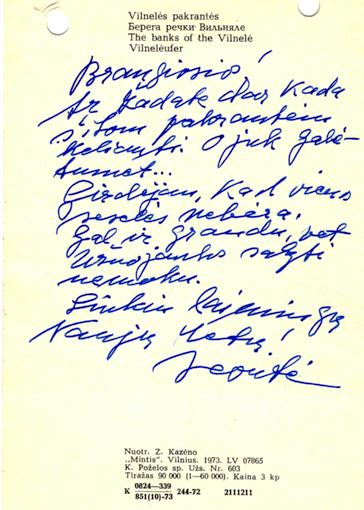 Vilnelės pakrantės
Берега речки Вильняле
The banks of the Vilnelė
Vilneléufer
Brangiosios!
Ar kada dar kada
šitom pakrantėm
O juk galė-
tumėt...
Girdėjau, kad vienos
seselės nebėra.
Gal ir graudu, bet
sakyti
nemoku.
Linkiu laimingų
Naujų Metų!
Nuotr. Z. Kazėno
„Mintis“. Vilnius. 1973. LV 07865
K. Poželos sp. Užs. Nr. 603
Tiražas 90 000 (1—60 000). Kaina 3 kp
K 0824—339 / 851(10)-73 244-72 2111211